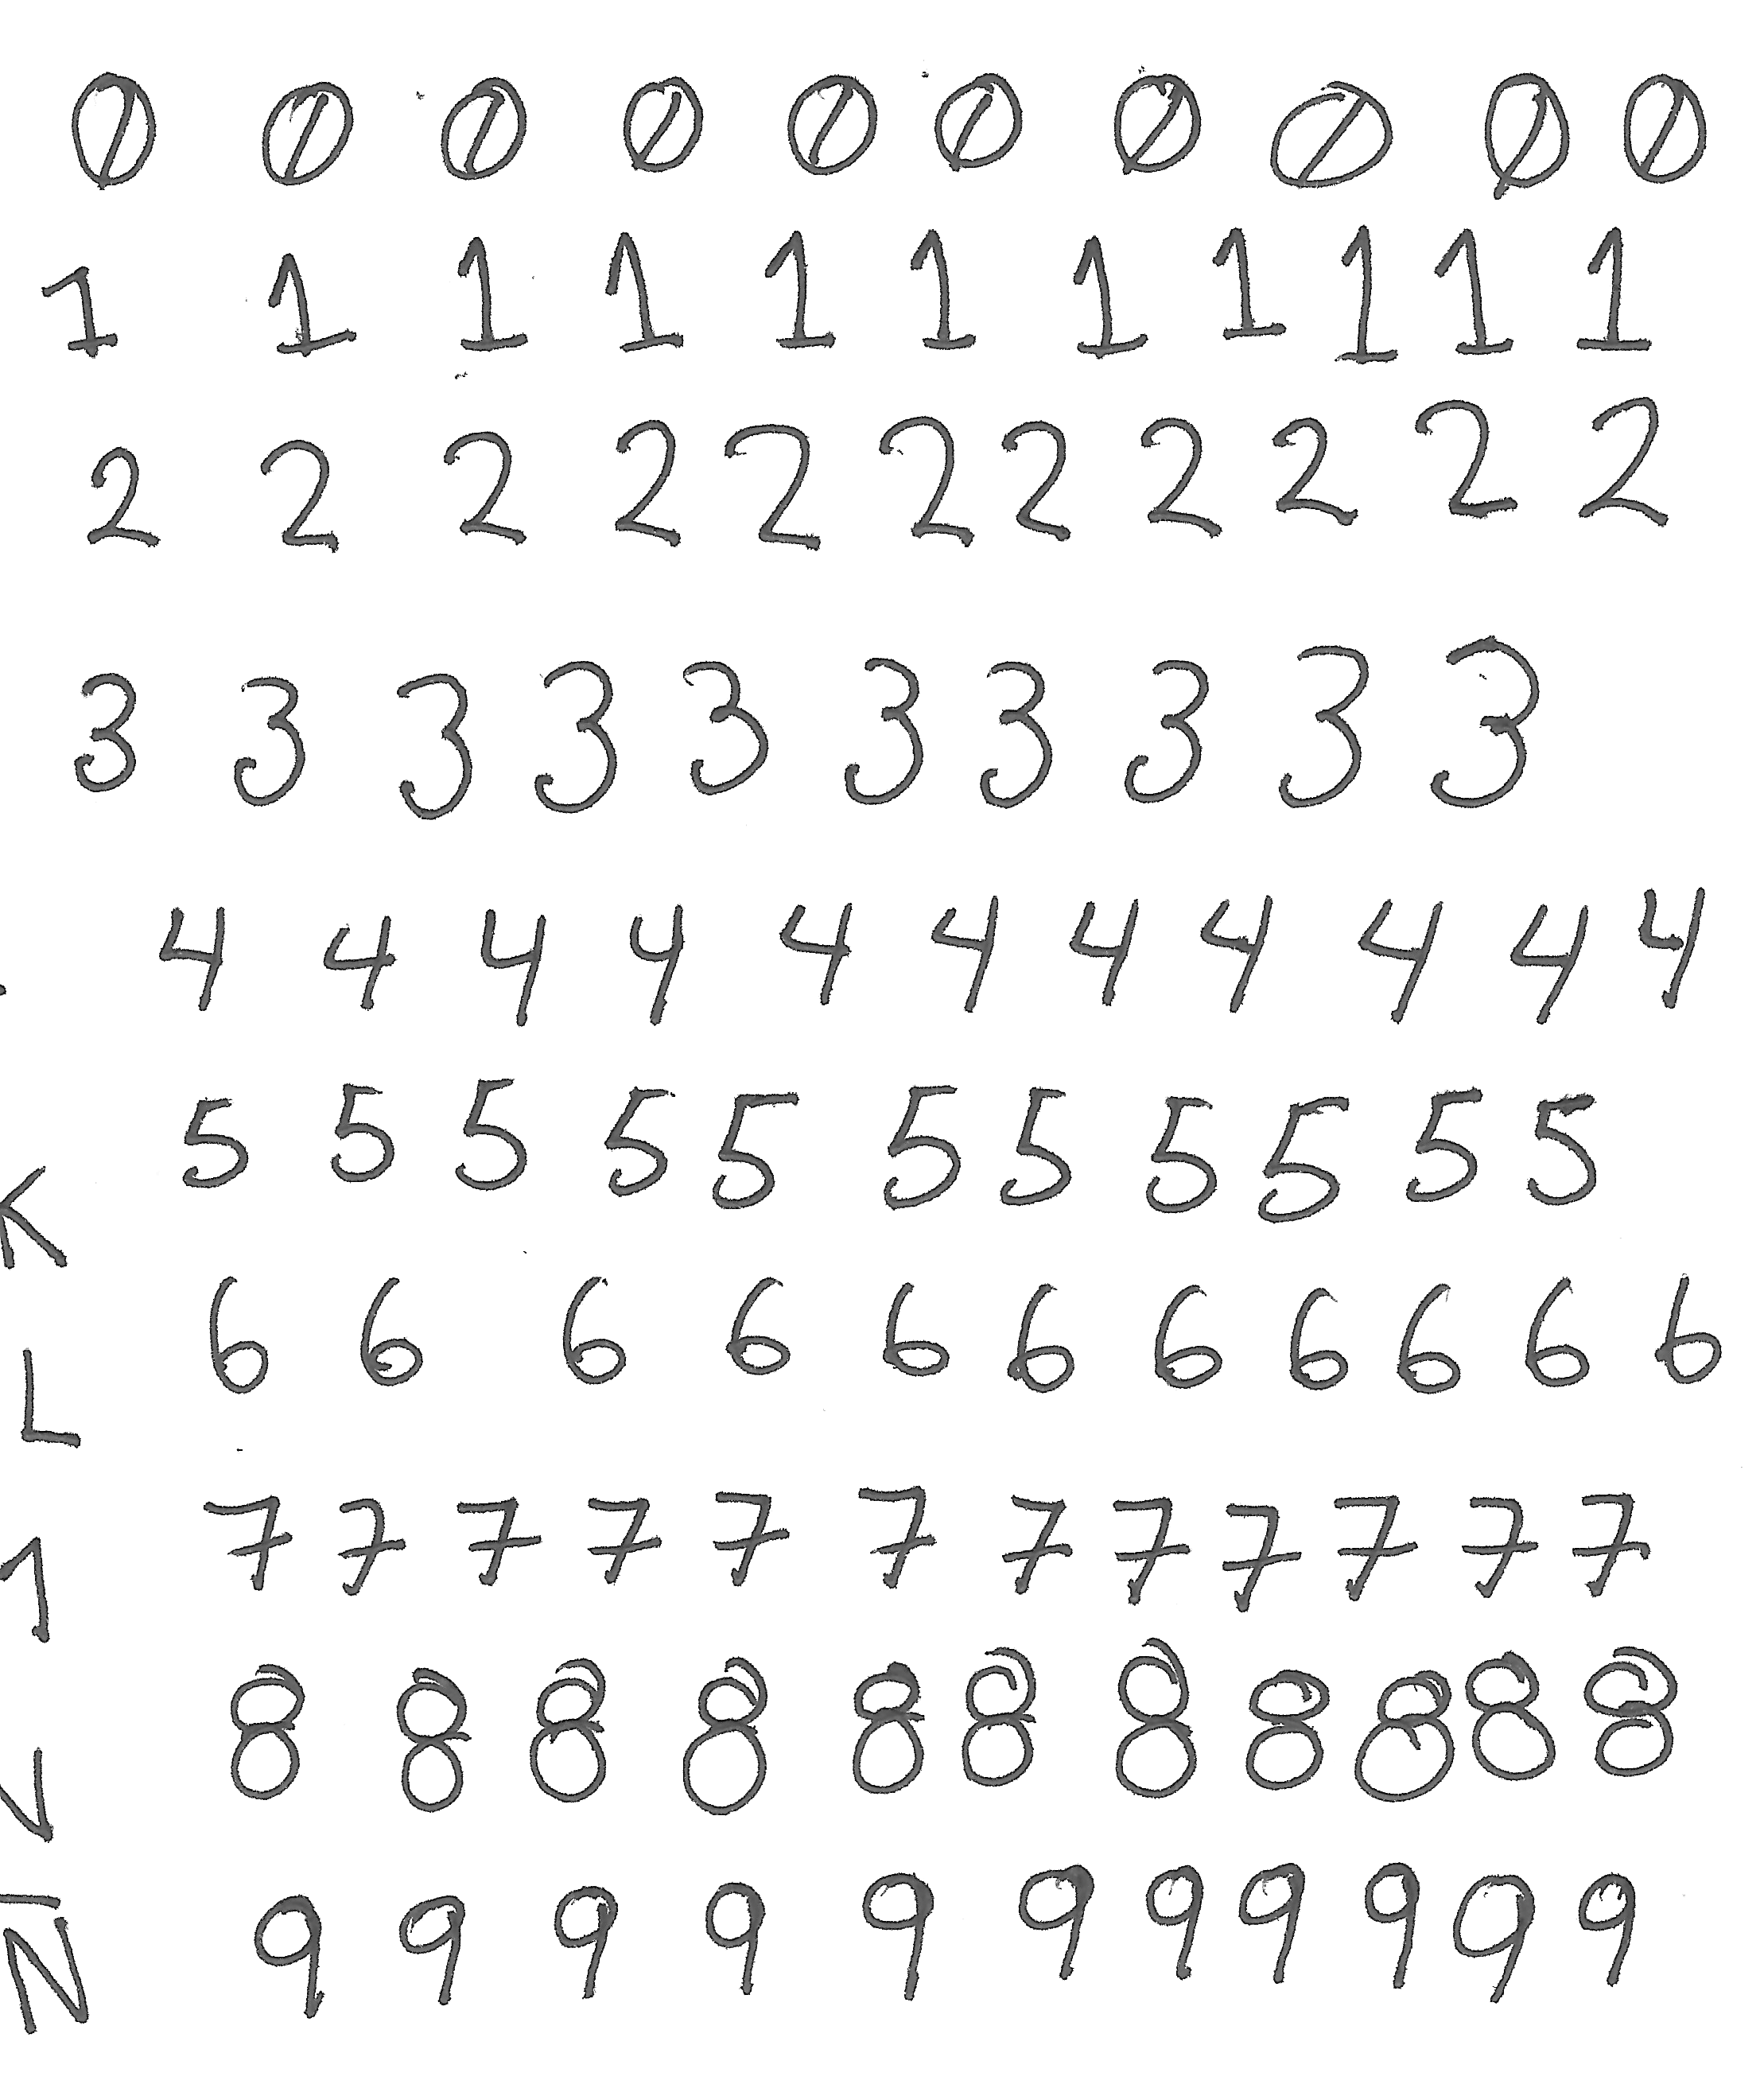 0 0 0 0 0 0 0 0 0 0
1 1 1 1 1 1 1 1 1 1 1
2 2 2 2 2 2 2 2 2 2 2
3 3 3 3 3 3 3 3 3 3
4 4 4 4 4 4 4 4 4 4 4
5 5 5 5 5 5 5 5 5 5 5
K
6 6 6 6 6 6 6 6 6 6 6
L
7 7 7 7 7 7 7 7 7 7 7 7
8 8 8 8 8 8 8 8 8 8 8
9 9 9 9 9 9 9 9 9 9 9
Ñ